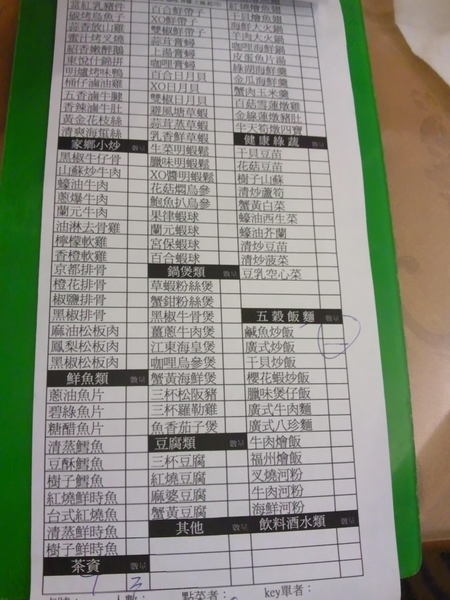 富紅乳豬件
碳烤烏魚子
蒜香放山雞
蜜汁烤叉燒
紹香嫩醉鵝
東悅什錦拼
明爐烤味鴨
桶仔滷油雞
五香滷牛腱
香辣滷牛肚
黃金花枝絲
清爽海蜇絲
家鄉小炒 數量
黑椒牛仔骨
山蘇炒牛肉
蠔油牛肉
蔥爆牛肉
蘭元牛肉
油淋去骨雞
檸檬軟雞
香橙軟雞
京都排骨
橙花排骨
椒鹽排骨
黑椒排骨
麻油松板肉
鳳梨松板肉
黑椒松板肉
鮮魚類 數量
蔥油魚片
碧綠魚片
糖醋魚片
清蒸鱈魚
豆酥鱈魚
樹子鱈魚
紅燒鮮時魚
台式紅燒魚
清蒸鮮時魚
樹子鮮時魚
茶資 數量
百合鮮帶子
XO鮮帶子
雙椒鮮帶子
蒜茸膏蟳
上湯膏蟳
咖哩膏蟳
百合日月貝
XO日月貝
雙椒日月貝
避風塘草蝦
蒜茸蒸草蝦
乳香鮮草蝦
生菜明蝦鬆
臘味明蝦鬆
XO醬明蝦鬆
花菇燜烏參
鮑魚扒烏參
果律蝦球
蘭元蝦球
宮保蝦球
百合蝦球
鍋煲類 數量
草蝦粉絲煲
蟹鉗粉絲煲
黑椒牛骨煲
薑蔥牛肉煲
江東海皇煲
咖哩烏參煲
蟹黃海鮮煲
三杯松阪豬
三杯羅勒雞
魚香茄子煲
豆腐類 數量
三杯豆腐
紅燒豆腐
麻婆豆腐
蟹黃豆腐
其他 數量
紅燒燴魚翅
干貝燴魚翅
海鮮大火鍋
羊肉大火鍋
咖哩海鮮鍋
皮蛋魚片湯
綠湖海鮮羹
金瓜海鮮羹
蟹肉玉米羹
百菇雪蓮燉雞
金線蓮燉豬肚
半天筍燉四寶
健康綠蔬 數量
干貝豆苗
花菇豆苗
樹子山蘇
清炒蘆筍
蟹黃白菜
蠔油西生菜
蠔油芥蘭
清炒豆苗
清炒菠菜
豆乳空心菜
五穀飯麵 數量
鹹魚炒飯
廣式炒飯
干貝炒飯
櫻花蝦炒飯
臘味煲仔飯
廣式牛肉麵
廣式八珍麵
牛肉燴飯
福州燴飯
叉燒河粉
牛肉河粉
海鮮河粉
飲料酒水類 數量
人數：
點菜者：
key單者：